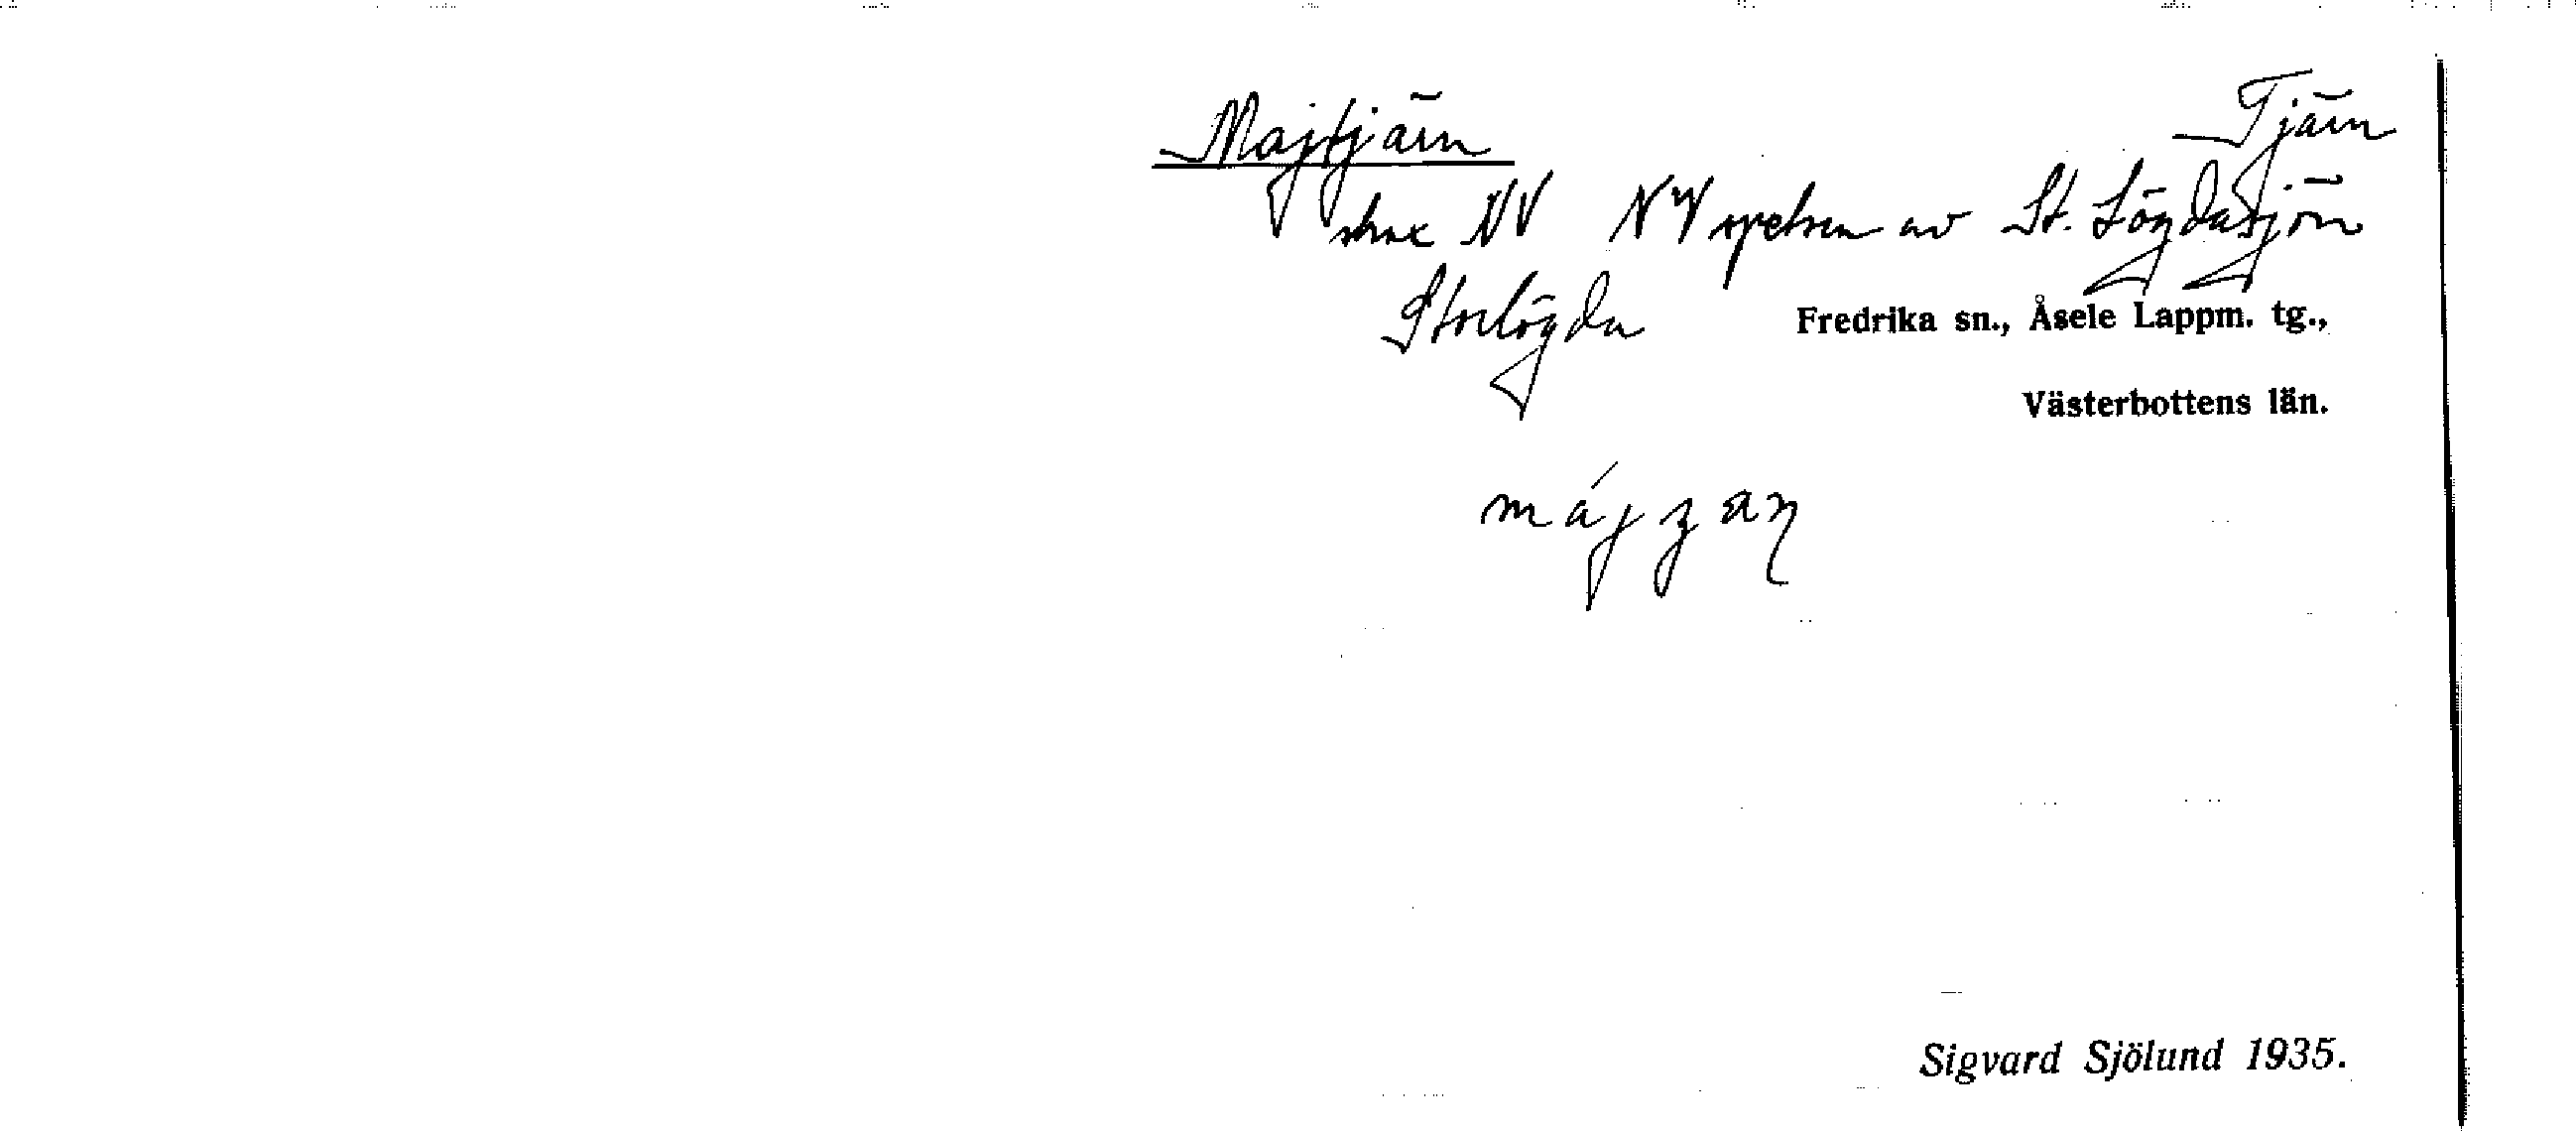 Majtjärn Tjärn
strax NV NV spetsen av St. Lögdasjön
Storlögda Fredrika sn., Åsele Lappm. tg.,
Västerbottens län.
Sigvard Sjölund 1935.